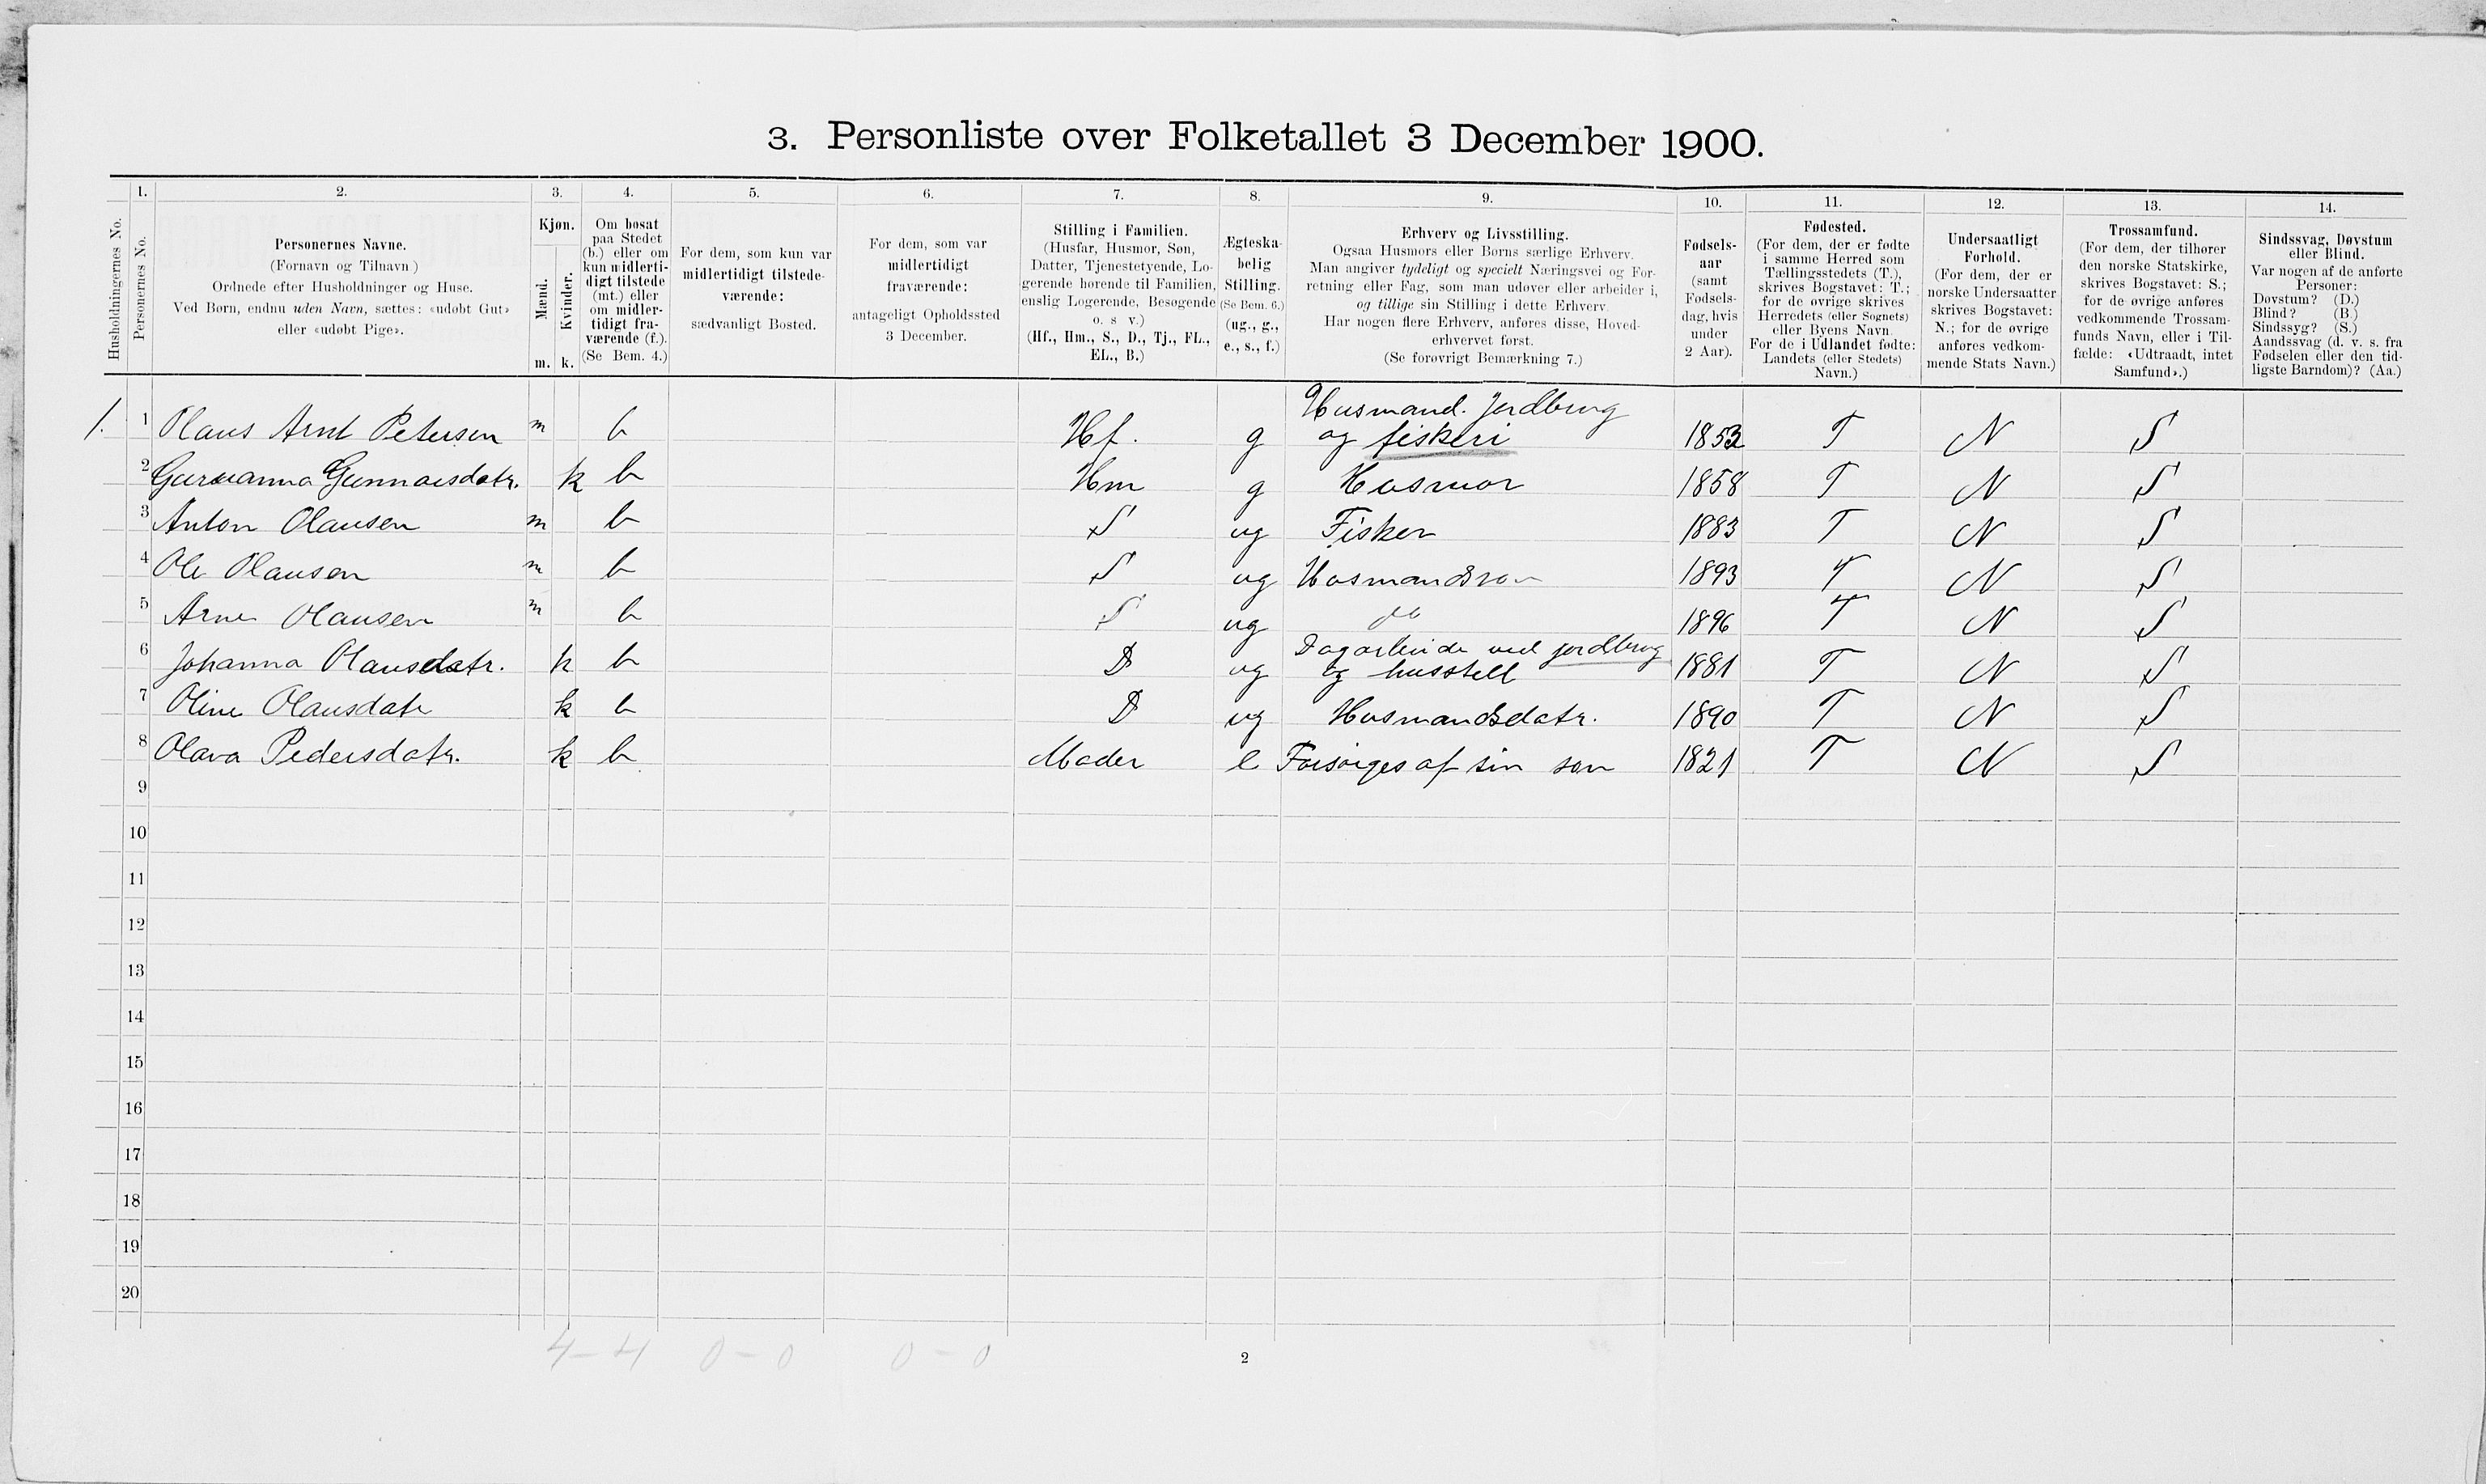 3. Personliste over Folketallet 3 December 1900.
1. 2. 3. 4. 5. 6. 7. 8. 9. 10. 11. 12. 13. 14.
Husholdningernes No.
Personernes No.
Personernes Navne.
(Fornavn og Tilnavn)
Ordnede efter Husholdninger og Huse.
Ved Børn, endnu uden Navn, sættes: «udøbt Gut»
eller «udøbt Pige».
Kjøn.
Mænd.
Kvinder.
m. k.
Om bosat
paa Stedet
(b.) eller om
kun midlerti-
digt tilstede
(mt.) eller
om midler-
tidigt fra-
værende (f.).
(Se Bem. 4.)
For dem, som kun var
midlertidigt tilstede-
værende:
sædvanligt Bosted.
For dem, som var
midlertidigt
fraværende:
antageligt Opholdssted
3 December.
Stilling i Familien.
(Husfar, Husmor, Søn,
Datter, Tjenestetyende, Lo-
gerende hørende til Familien,
enslig Logerende, Besøgende
o. s v.)
(Hf., Hm., S., D., Tj., FL.,
EL., B.)
Ægteska-
belig
Stilling.
(Se Bem. 6.)
(ug., g.,
e., s., f.)
Erhverv og Livsstilling.
Ogsaa Husmors eller Børns særlige Erhverv.
Man angiver tydeligt og specielt Næringsvei og For-
retning eller Fag, som man udøver eller arbeider i,
og tillige sin Stilling i dette Erhverv.
Har nogen flere Erhverv, anføres disse, Hoved-
erhvervet først.
(Se forøvrigt Bemærkning 7.)
Fødsels-
aar
(samt
Fødsels-
dag, hvis
under
2 Aar).
Fødested.
(For dem, der er fødte
i samme Herred som
Tællingsstedets (T.),
skrives Bogstavet: T.;
for de øvrige skrives
Herredets (eller Sognets)
eller Byens Navn.
For de i Udlandet fødte:
Landets (eller Stedets)
Navn.)
Undersaatligt
Forhold.
(For dem, der er
norske Undersaatter
skrives Bogstavet:
N.; for de øvrige
anføres vedkom-
mende Stats Navn.)
Trossamfund.
(For dem, der tilhører
den norske Statskirke,
skrives Bogstavet: S.;
for de øvrige anføres
vedkommende Trossam-
funds Navn, eller i Til-
fælde: «Udtraadt, intet
Samfund».)
Sindssvag, Døvstum
eller Blind.
Var nogen af de anførte
Personer:
Døvstum? (D.)
Blind? (B.)
Sindssyg? (S.)
Aandssvag (d. v. s. fra
Fødselen eller den tid-
ligste Barndom)? (Aa.)
Husmand. Jordbrug
1. 1 Olaus Arnt Petersen m b Hf. g og fiskeri 1853 T N S
2 Gunnarsdatr. k b Hm g Husmor 1858 T N S
3 Anton Olausen m b S ug Fisker 1883 T N S
4 Ole Olausen m b S ug Husmandsøn 1893 T N S
5 Arne Olausen m b S ug do 1896 T N S
Dagarbeide ved jordbrug
6 Johanna Olausdatr. k b D ug og husstell 1881 T N S
7 Oline Olausdatr k b D ug Husmandsdatr. 1890 T N S
8 Olava Pedersdatr. k b Moder e Forsørges af sin søn 1821 T N S
9
10
11
12
13
14
15
16
17
18
19
20
4 - 4 0 - 0 0 - 0
2